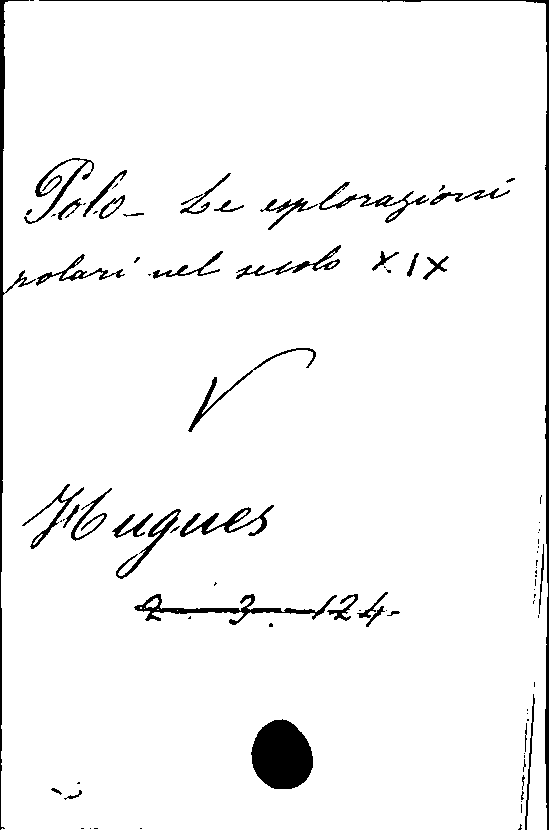 Polo - Le esplorazioni
polari nel secolo XIX
V
Hugues
2. 3. 124.